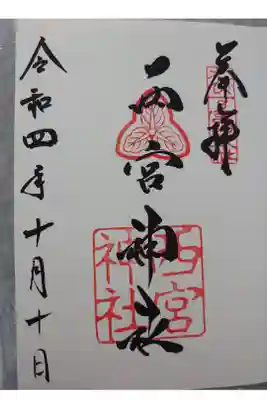 奉拝
西宮神社
西宮
神社
令和四年十月十日